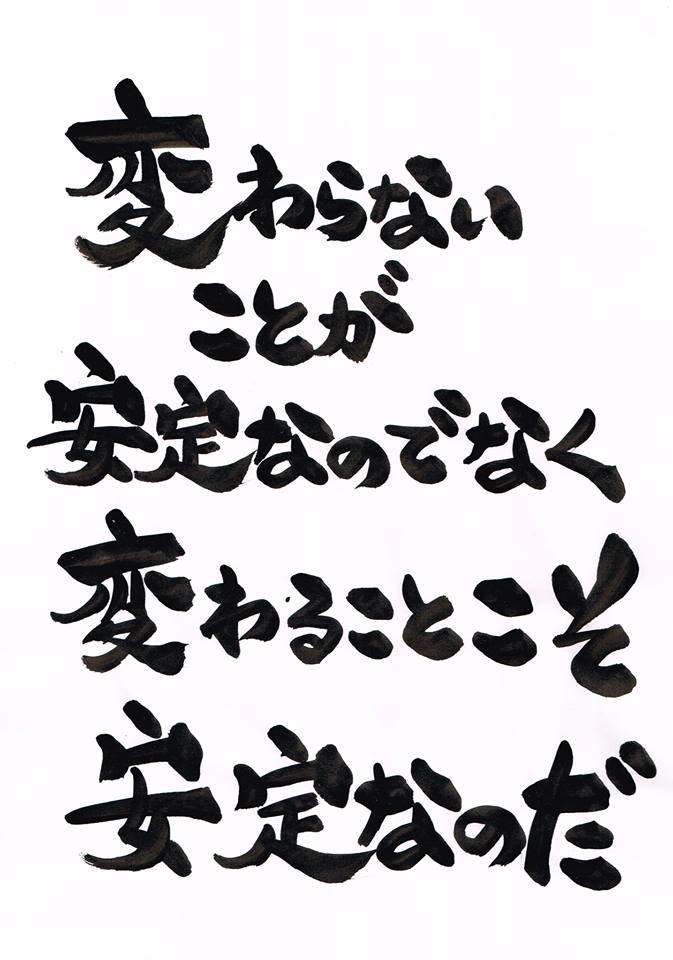 変わらない
ことが
安定なのでなく
変わることこそ
安定なのだ